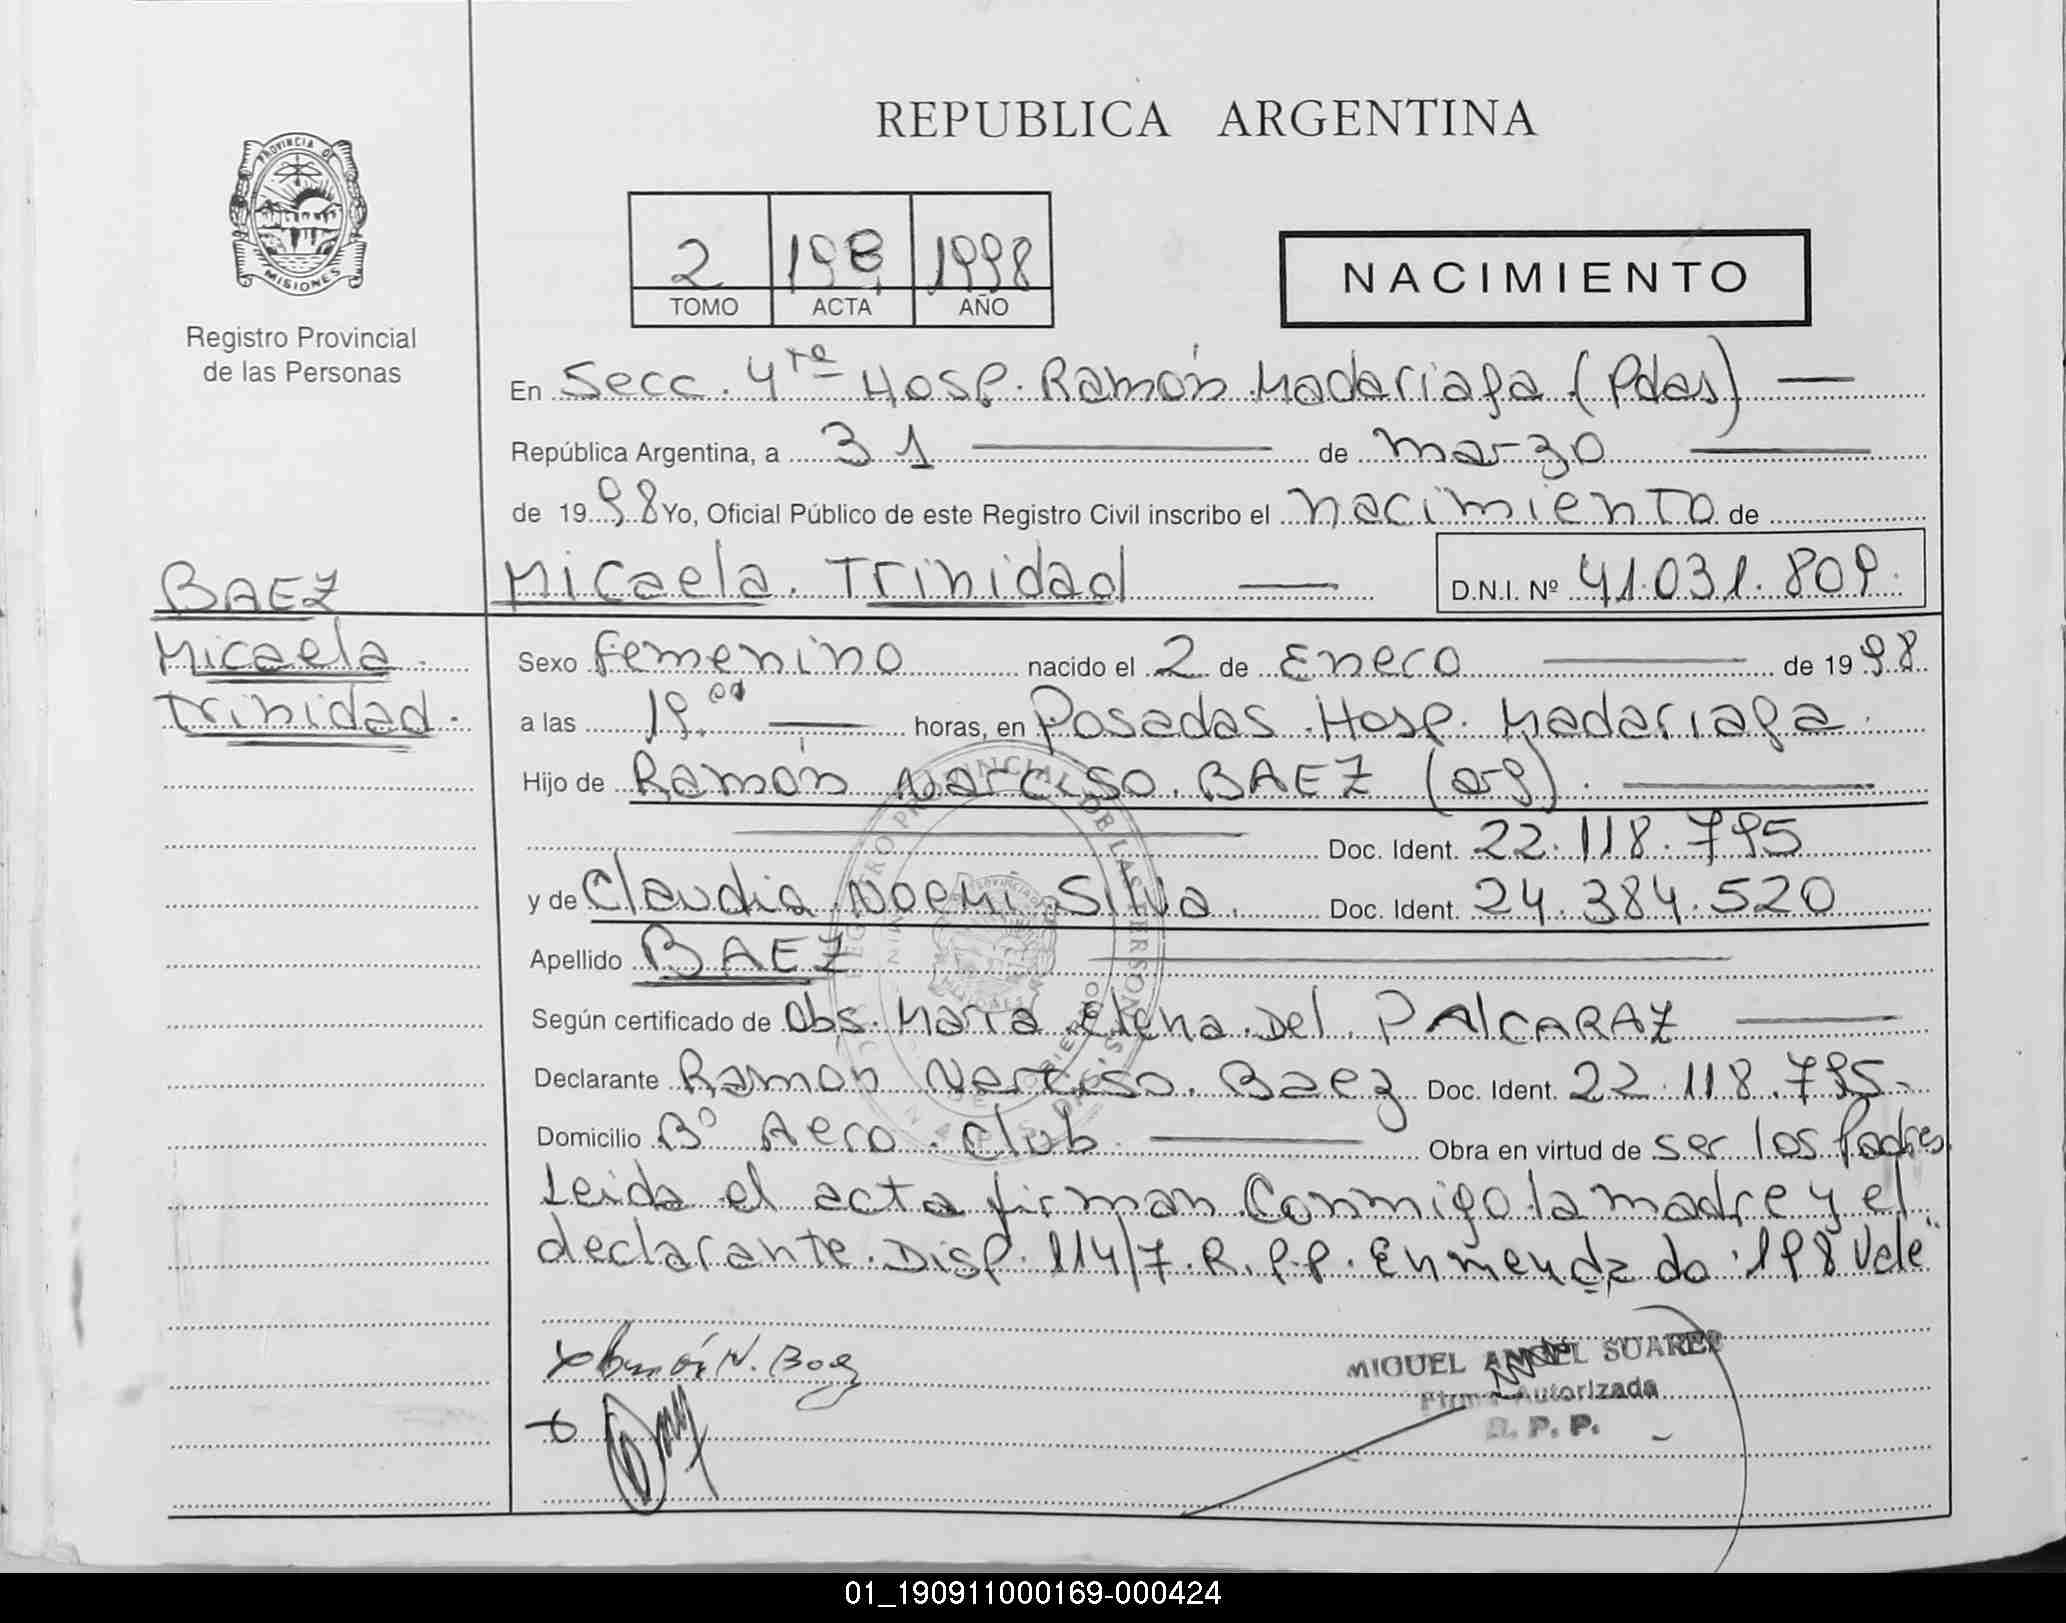 REPUBLICA ARGENTINA
PROVINCIA DE
MISIONES
Registro Provincial
de las Personas
2 198 1998
TOMO ACTA AÑO
NACIMIENTO
En Secc. 4ta Hosp. Ramón Madariaga (Pdas)
República Argentina, a 31 de marzo
de 1998 Yo, Oficial Público de este Registro Civil inscribo el nacimiento de
Micaela Trinidad D.N.I. Nº 41.031.809.
BAEZ
Micaela
Trinidad.
Sexo femenino nacido el 2 de Enero de 1998
a las 19.00 horas, en Posadas Hosp. Madariaga
Hijo de Ramón Narciso BAEZ (arg).
Doc. Ident. 22.118.795
y de Claudia Noemi Silva. Doc. Ident. 24.384.520
Apellido BAEZ
Según certificado de Obs. Maria Elena Del P Alcaraz
Declarante Ramon Narciso Baez Doc. Ident. 22.118.795.
Domicilio Bº Aero Club Obra en virtud de ser los Padres
Leida el acta firman conmigo la madre y el
declarante. Disp. 114/7. R.P.P. Enmendado "198 Vale"
Ramón N. Baez
MIGUEL ANGEL SUAREZ
Firma Autorizada
R. P. P.
01_190911000169-000424